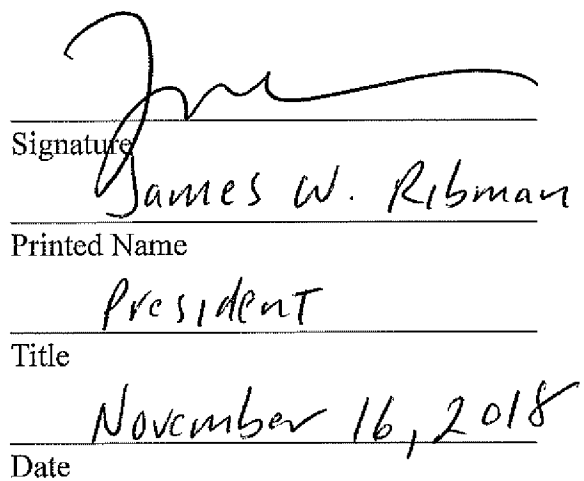 Signature
James W. Ribman
Printed Name
President
Title
November 16, 2018
Date